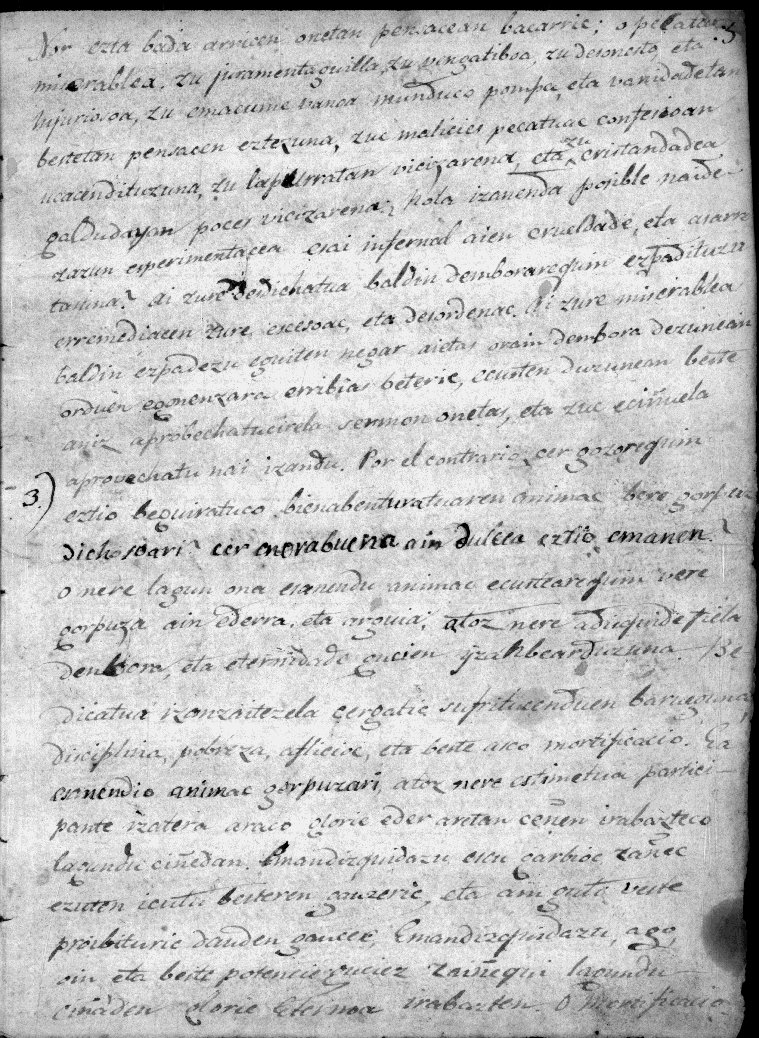 Nor ezta bada arricen onetan pensacean bacarric; o pecatore 5
miserablea, zu juramentaguilla, zu vengatiboa, zu desonesto, eta
injuriosoa, zu emacume vanoa munduco pompa, eta vanidadetan
bestetan pensacen eztezuna, zuc malicies pecatuac confesioan
ucacendituzuna, zu lapurratan vicizarena, eta zu cristandadea
galdudayan poces vicizarena; nola izanenda posible naide
zazun esperimentacea esai infernal aien crueldade, eta asarre
tasuna? Ai zure desdichatua baldin demborarequin ezpadituzu
erremediacen zure excesoac, eta desordenac. Ai zure miserablea
baldin ezpadezu eguiten negar aietas orain dembora dezunean
orduen egonenzara erribias beteric, ecusten duzunean beste
aniz aprobechatucirela sermon onetas, eta zuc eciñuela
aprovechatu nai izandu. Por el contrario, cer gozorequin
3) eztio beguiratuco bienabenturatuaren animac bere gorpuz
dichosoari? cer enorabuena ain dulcea eztio emanen?
O nere lagun ona esanendu animac ecustearequin vere
gorpuza ain ederra, eta arguia; atoz nere adisquide fiela
denbora, eta eternidade gucien izanbearduzuna. Be
dicatua izonzaitezela cergatic sufritucenduen baruguna,
disciplina, pobreza, aflicioe, eta beste asco mortificacio. Ea
esanendio animac gorpuzari, atoz nere estimatua partici-
pante izatera araco glorie eder artan ceñen irabazteco
lagundu ciñedan. Emandizquidazu escu garbioc zañec
ezuten icutu besteren gauzeric, eta ain gutti veste
proibituric dauden gaucec, Emandizquidazu, a go,
oin eta beste potencie guciez zañequi lagundu
ciñaden glorie eternoa irabazten. O mortificacio